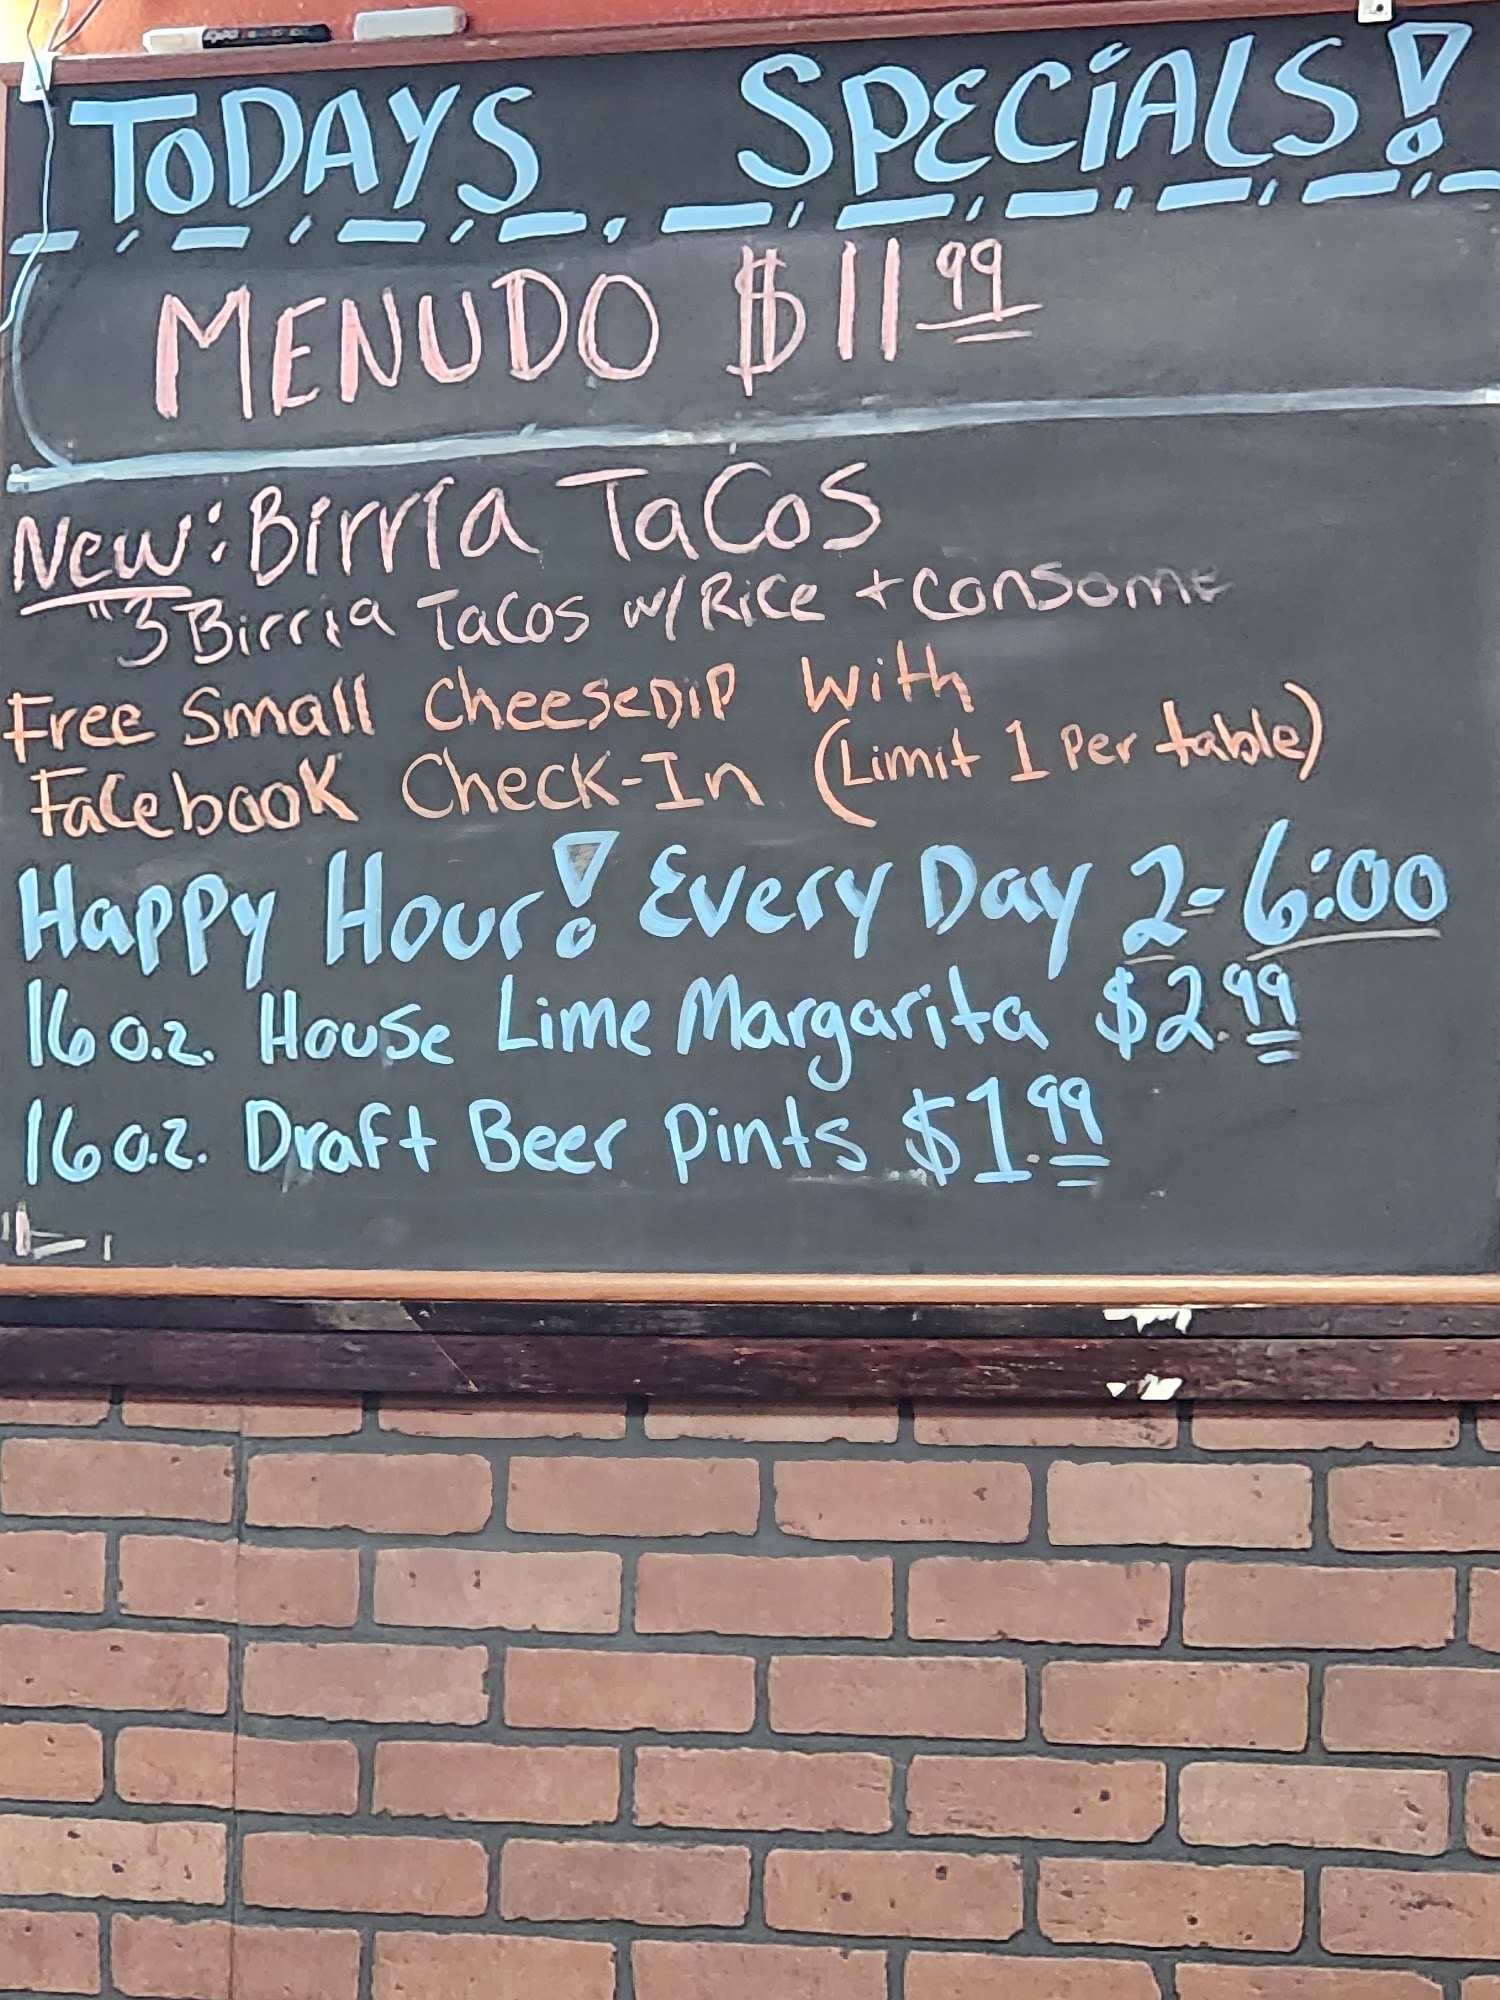 TODAYS SPECIALS!
MENUDO $11.99
New: Birria Tacos
"3 Birria Tacos w/ Rice + Consome
Free Small CheeseDip With
Facebook Check-In (Limit 1 Per table)
Happy Hour! Every Day 2-6:00
16 oz. House Lime Margarita $2.99
16 oz. Draft Beer Pints $1.99